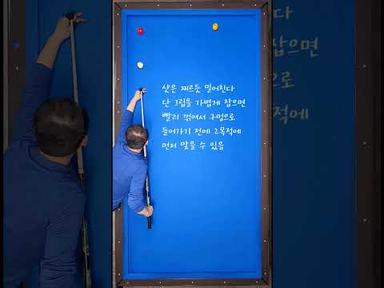 샷은 찌르듯 밀어친다
단 그립을 가볍게 잡으면
빨리 꺾여서 구멍으로
들어가기 전에 2목적에
먼저 맞을 수 있음